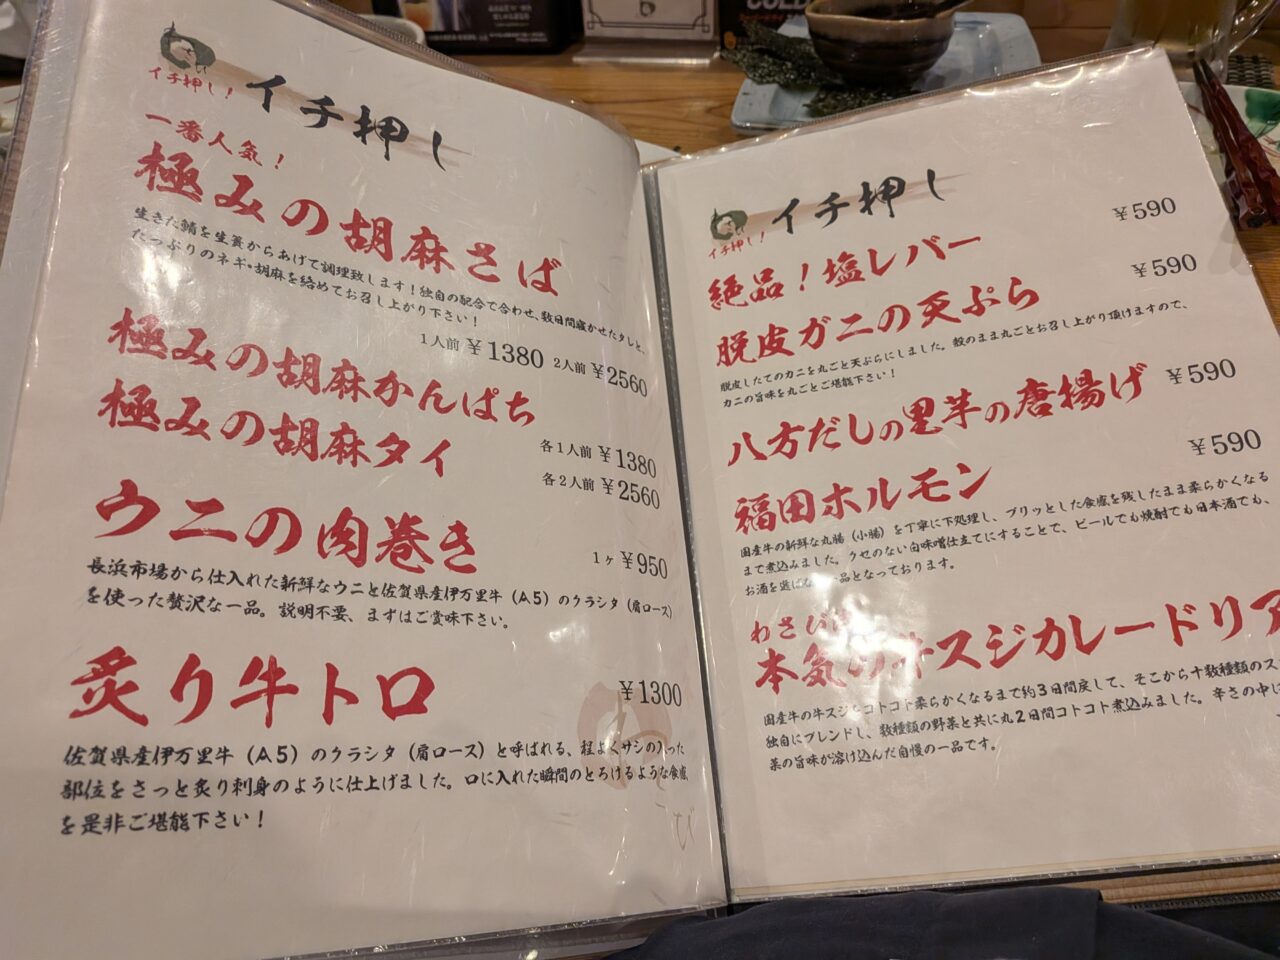 イチ押し！
イチ押し
一番人気！
極みの胡麻さば
生きた鯖を生簀からあげて調理致します！独自の配合で合わせ、数日間寝かせたタレと、
たっぷりのネギ・胡麻を絡めてお召し上がり下さい！
1人前 ￥1380 2人前 ￥2560
極みの胡麻かんぱち
極みの胡麻タイ
各1人前 ￥1380
各2人前 ￥2560
ウニの肉巻き
1ヶ ￥950
長浜市場から仕入れた新鮮なウニと佐賀県産伊万里牛（A5）のクラシタ（肩ロース）
を使った贅沢な一品。説明不要、まずはご賞味下さい。
炙り牛トロ
￥1300
佐賀県産伊万里牛（A5）のクラシタ（肩ロース）と呼ばれる、程よくサシの入った
部位をさっと炙り刺身のように仕上げました。口に入れた瞬間のとろけるような食感
を是非ご堪能下さい！
イチ押し！
イチ押し
絶品！塩レバー
￥590
脱皮ガニの天ぷら
￥590
脱皮したてのカニを丸ごと天ぷらにしました。殻のまま丸ごとお召し上がり頂けますので、
カニの旨味を丸ごとご堪能下さい！
八方だしの里芋の唐揚げ
￥590
福田ホルモン
￥590
国産牛の新鮮な丸腸（小腸）を丁寧に下処理し、プリッとした食感を残したまま柔らかくなる
まで煮込みました。クセのない白味噌仕立てにすることで、ビールでも焼酎でも日本酒でも、
お酒を選ばない一品となっております。
わさび
本気の牛スジカレードリア
国産牛の牛スジをコトコト柔らかくなるまで約3日間戻して、そこから十数種類のス
独自にブレンドし、数種類の野菜と共に丸2日間コトコト煮込みました。辛さの中に
菜の旨味が溶け込んだ自慢の一品です。